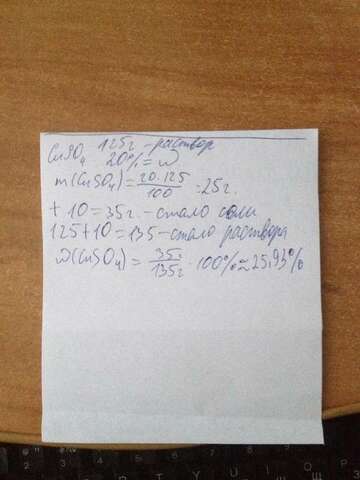 CuSO₄ 125г - раствор
20% = ω
m(CuSO₄) = 20·125/100 = 25г.
+ 10 = 35г. - стало соли
125 + 10 = 135 - стало раствора
ω(CuSO₄) = 35г/135г · 100% ≈ 25,93%